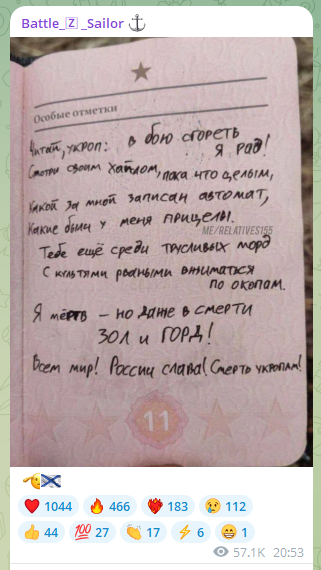 Battle_🇿_Sailor ⚓
Особые отметки
Читай, укроп: в бою сгореть
Я рад!
Смотри своим хайлом, пока что целым,
Какой за мной записан автомат,
Какие были у меня прицелы.
ME/RELATIVES155
Тебе ещё среди трусливых морд
С культями рваными вжиматься
по окопам.
Я мёртв – но даже в смерти
ЗОЛ и ГОРД!
Всем мир! России слава! Смерть укропам!
11
1044 466 183 112
44 27 17 6 1
57.1K 20:53